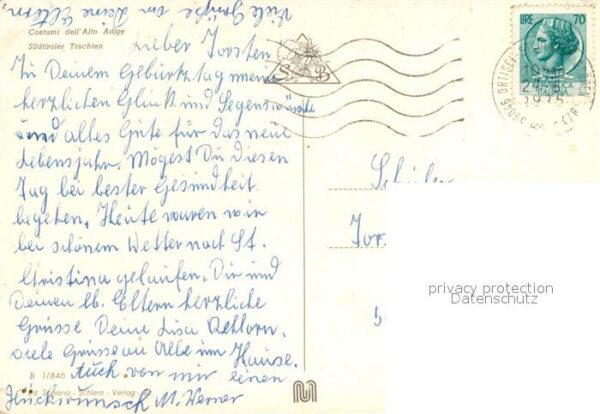 Viele Grüße an Deine Eltern.
Costumi dell'Alto Adige
Südtiroler Trachten
Lieber Torsten
Zu Deinem Geburtstag meine
herzlichen Glück und Segenswünsche
und alles Gute für das neue
Lebensjahr. Mögest Du diesen
Tag bei bester Gesundheit
begehen. Heute waren wir
bei schönem Wetter nach St.
Christina gelaufen. Dir und
Deinen lb. Eltern herzliche
Grüsse Deine Lisa
viele Grüsse an Alle im Hause.
Auch von mir einen
Glückwunsch M. Werner
B 1/846
Schlern - Verlag
S B
LIRE 70
ITALIANA
ORTISEI
1975
Schüler
Tors
5
privacy protection
Datenschutz